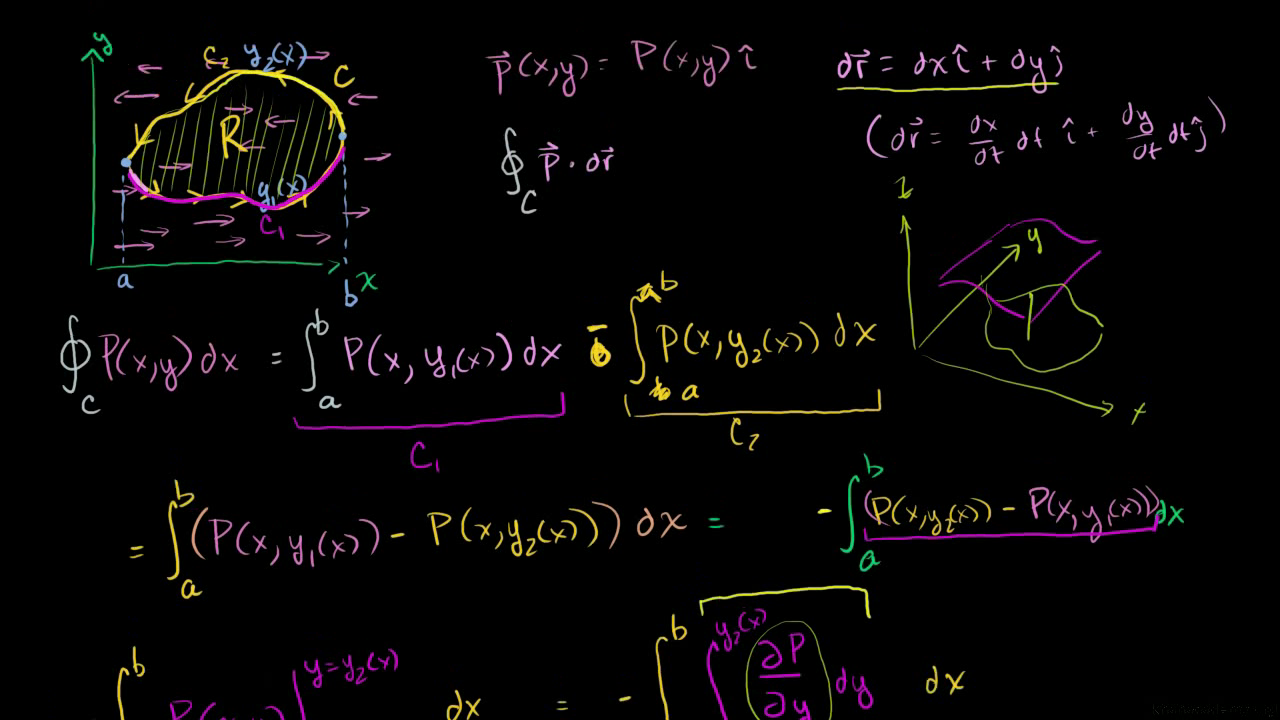 y
C₂ y₂(x) C
R
y₁(x)
C₁
a b x
P⃗(x,y) = P(x,y) î
∮_C P⃗ · dr⃗
dr⃗ = dx î + dy ĵ
(dr⃗ = dx/dt dt î + dy/dt dt ĵ)
z
y
x
∮_C P(x,y) dx = ∫_a^b P(x, y₁(x)) dx - ∫_a^b P(x, y₂(x)) dx
C₁ C₂
= ∫_a^b (P(x, y₁(x)) - P(x, y₂(x))) dx = - ∫_a^b (P(x, y₂(x)) - P(x, y₁(x))) dx
∫^b | y = y₂(x) dx = - ∫^b ∫^y₂(x) ∂P/∂y dy dx